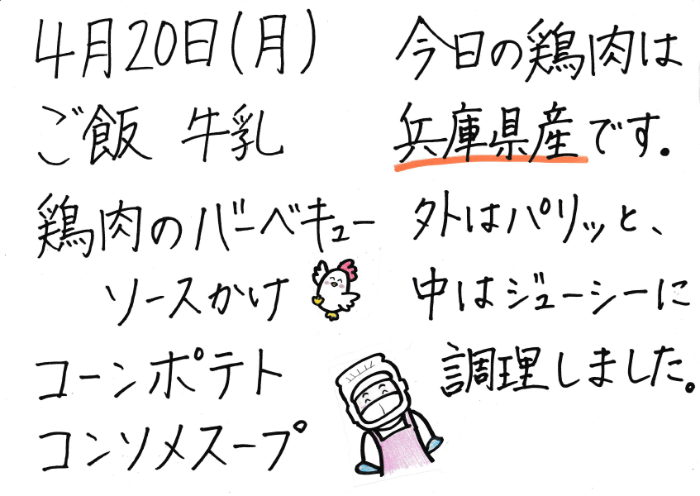 4月20日(月)
ご飯 牛乳
鶏肉のバーベキュー
ソースかけ
コーンポテト
コンソメスープ
今日の鶏肉は
兵庫県産です。
外はパリッと、
中はジューシーに
調理しました。